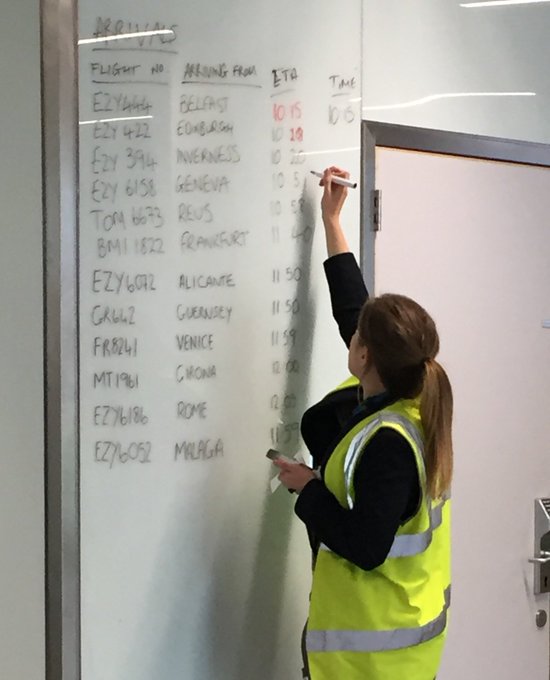 ARRIVALS
FLIGHT NO. ARRIVING FROM ETA TIME
EZY444 BELFAST 10 15 10 15
EZY 422 EDINBURGH 10
EZY 394 INVERNESS 10 20
EZY 6158 GENEVA 10 5
TOM 6673 REUS 10 58
BMI 1822 FRANKFURT 11 40
EZY6072 ALICANTE 11 50
GR662 GUERNSEY 11 50
FR8241 VENICE 11 59
MT1961 GIRONA 12 00
EZY6186 ROME 12
EZY6052 MALAGA 11 59